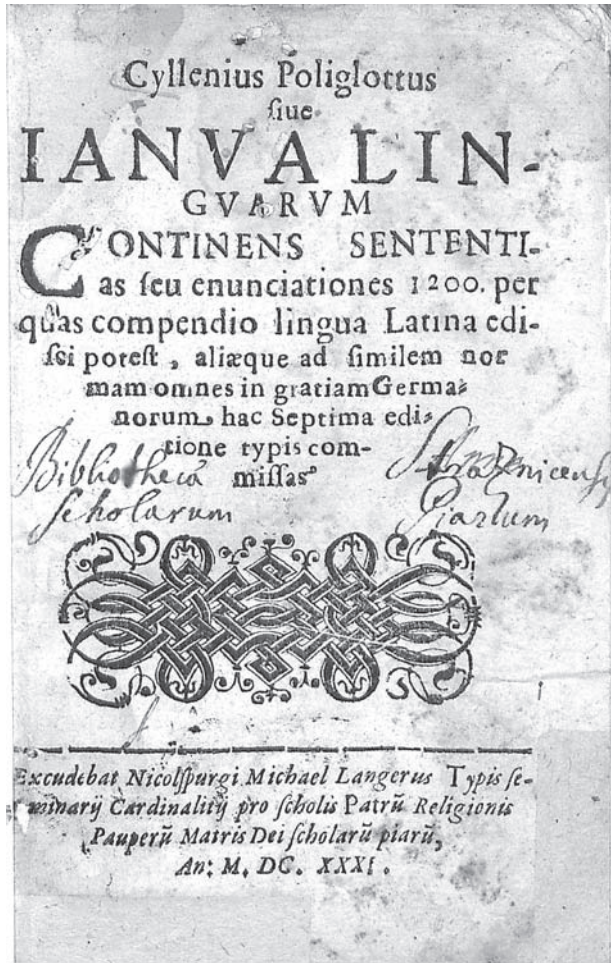 Cyllenius Poliglottus
ſiue
IANVA LIN-
GVARVM
CONTINENS SENTENTI-
as ſeu enunciationes 1200. per
quas compendio lingua Latina edi-
ſci poteſt, aliæque ad ſimilem nor
mam omnes in gratiam Germa-
norum hac Septima edi-
tione typis com-
miſſas
Bibliotheca
Scholarum Piarum
Excudebat Nicolſpurgi Michael Langerus Typis ſe-
minarij Cardinalitij pro ſcholis Patrū Religionis
Pauperū Matris Dei ſcholarū piarū,
An: M. DC. XXXI.